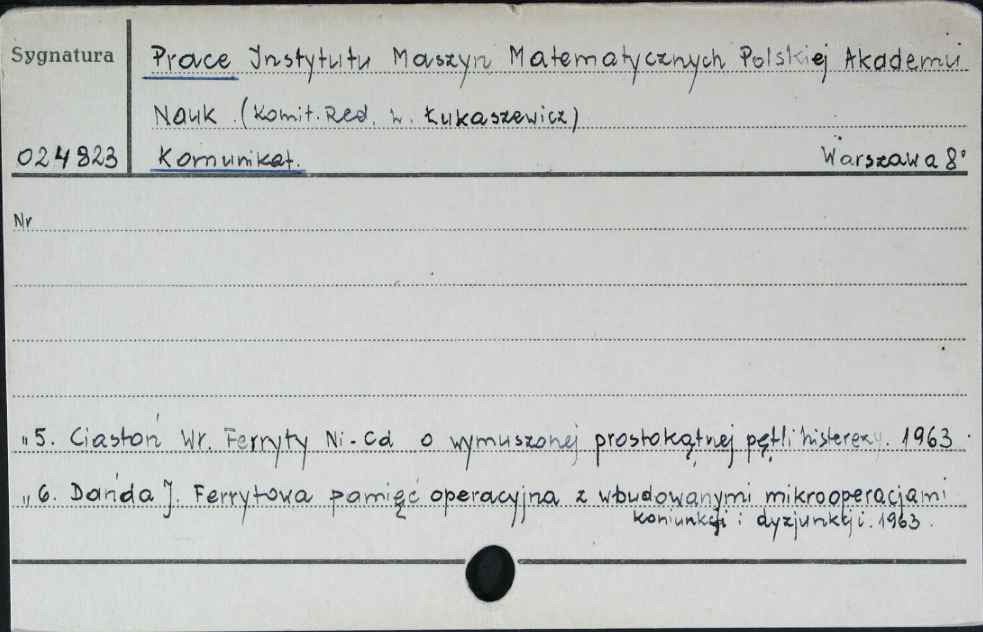 Sygnatura
Prace Instytutu Maszyn Matematycznych Polskiej Akademii
Nauk. (Komit. Red. Ł. Łukaszewicz)
024823 Komunikat. Warszawa 8°
Nr
"5. Ciastoń Wr. Ferryty Ni-Cd o wymuszonej prostokątnej pętli histerezy. 1963.
"6. Dańda J. Ferrytowa pamięć operacyjna z wbudowanymi mikrooperacjami
koniunkcji i dyzjunkcji. 1963.